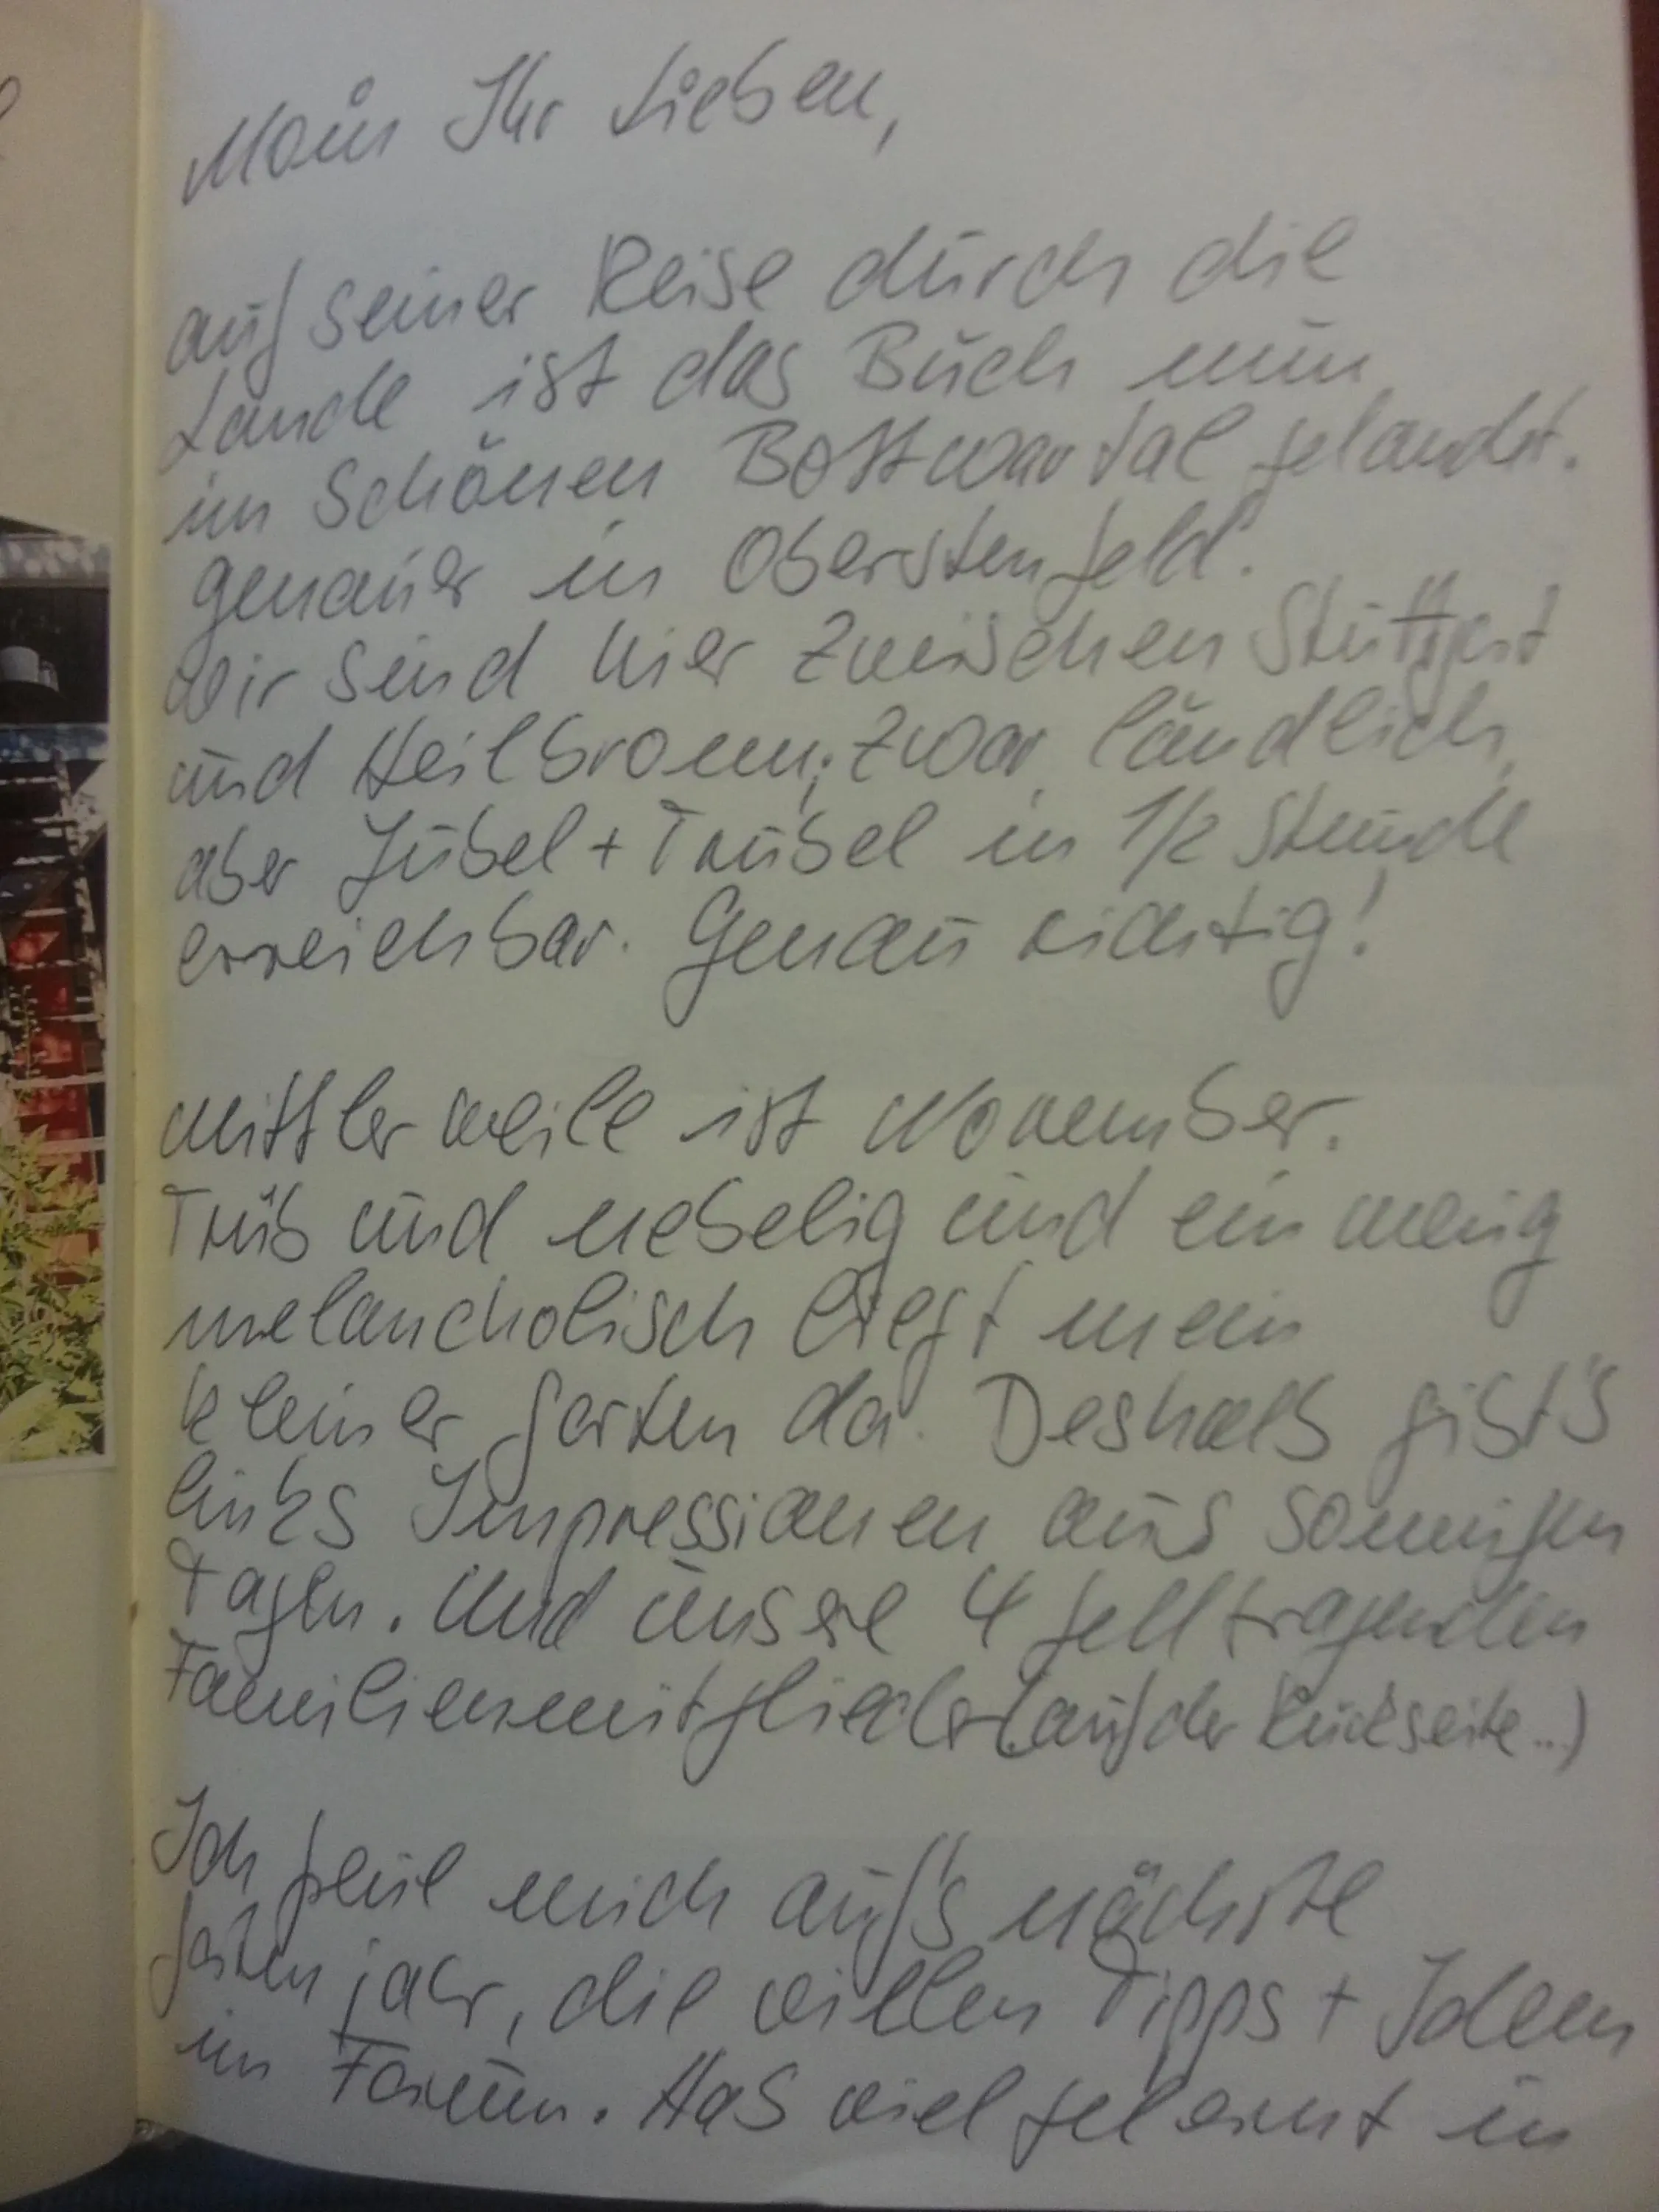 Moin Ihr Lieben,
auf seiner Reise durch die
Lande ist das Buch nun
im schönen Bottwartal gelandet.
genauer in Oberstenfeld.
Wir sind hier zwischen Stuttgart
und Heilbronn; zwar ländlich,
aber Jubel + Trubel in 1/2 Stunde
erreichbar. Genau richtig!
Mittlerweile ist November.
Trüb und nebelig und ein wenig
melancholisch liegt mein
kleiner Garten da. Deshalb gibt's
links Impressionen aus sonnigen
Tagen. Und unsere 4 felltragenden
Familienmitglieder (auf der Rückseite..)
Ich freue mich auf's nächste
Gartenjahr, die vielen Tipps + Ideen
im Forum. Hab viel gelernt in